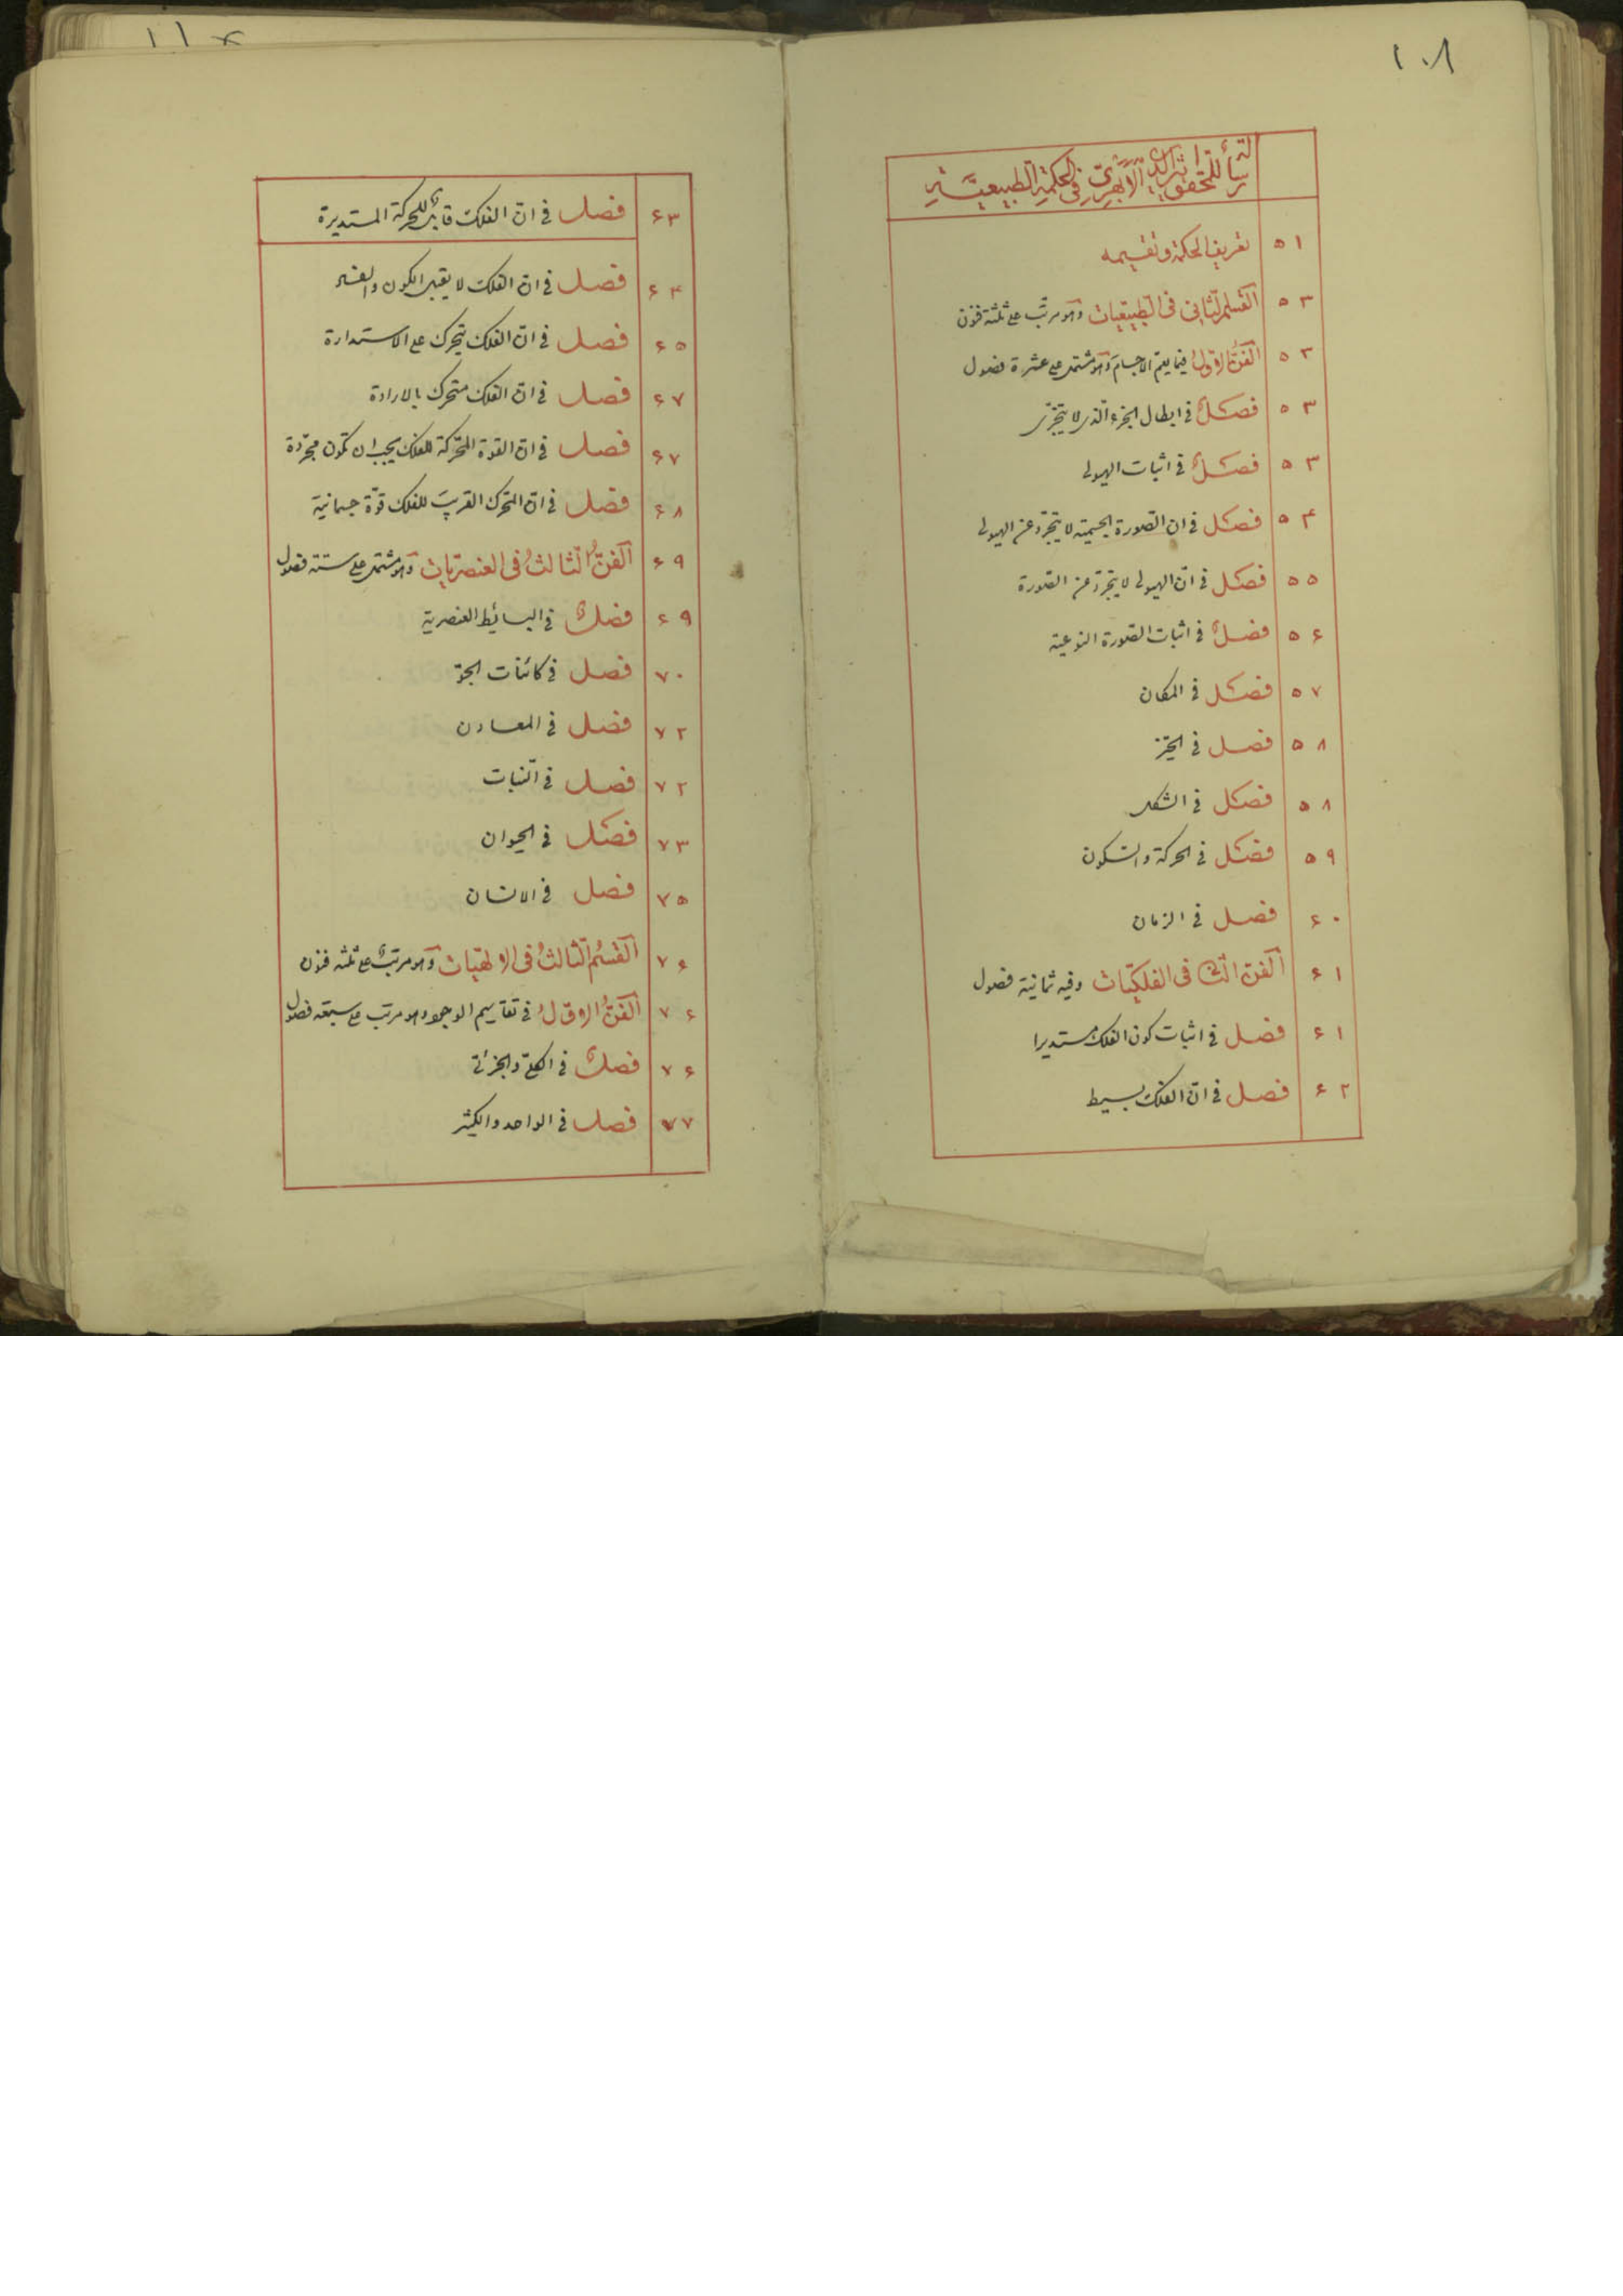 ١٠٨
رسالة للمحقق اثير الدين الابهري في الحكمة الطبيعية
٥١ تعريف الحكمة وتقسيمه
٥٣ القسم الثاني في الطبيعيات وهو مرتب على ثلثة فنون
٥٣ الفن الاول فيما يعم الاجسام وهو مشتمل على عشرة فصول
٥٣ فصل في ابطال الجزء الذى لا يتجزى
٥٣ فصل في اثبات الهيولى
٥٤ فصل في ان الصورة الجسمية لا تتجرد عن الهيولى
٥٥ فصل في ان الهيولى لا يتجرد عن الصورة
٥۶ فصل في اثبات الصورة النوعية
٥٧ فصل في المكان
٥٨ فصل في الحيز
٥٨ فصل في الشكل
٥٩ فصل في الحركة والسكون
۶٠ فصل في الزمان
۶١ الفن الثاني في الفلكيات وفيه ثمانية فصول
۶١ فصل في اثبات كون الفلك مستديرا
۶٢ فصل في ان الفلك بسيط
١١
۶٣ فصل في ان الفلك قابل للحركة المستديرة
۶۴ فصل في ان الفلك لا يقبل الكون والفساد
۶٥ فصل في ان الفلك يتحرك على الاستدارة
۶٧ فصل في ان الفلك متحرك بالارادة
۶٧ فصل في ان القوة المحركة للفلك يجب ان تكون مجردة
۶٨ فصل في ان المحرك القريب للفلك قوة جسمانية
۶٩ الفن الثالث في العنصريات وهو مشتمل على ستة فصول
۶٩ فصل في البسائط العنصرية
٧٠ فصل في كائنات الجو
٧٢ فصل في المعادن
٧٢ فصل في النبات
٧٣ فصل في الحيوان
٧٥ فصل في الانسان
٧۶ القسم الثالث في الالهيات وهو مرتب على ثلثة فنون
٧۶ الفن الاول في تقاسيم الوجود وهو مرتب على سبعة فصول
٧۶ فصل في الكلى والجزئى
٧٧ فصل في الواحد والكثير